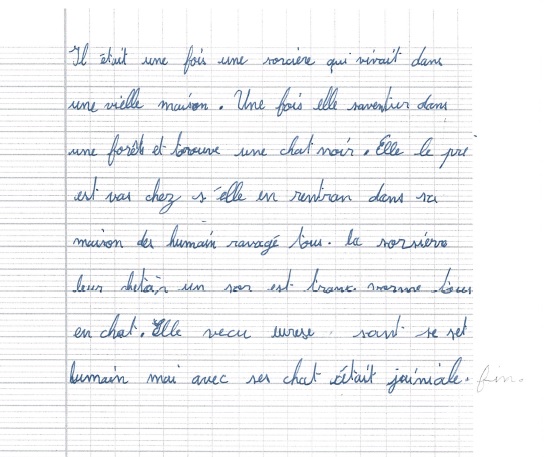 Il était une fois une sorcière qui vivait dans
une vielle maison. Une fois elle saventur dans
une forêt et trouve une chat noir. Elle le pre
est vas chez s'elle en rentran dans sa
maison des humain ravagé tous. la sorsiere
leur jetais un sor est trans- forme tous
en chat. Elle vecu eurese sant se set
humain mai avec ses chat cétait jainiale. fin.